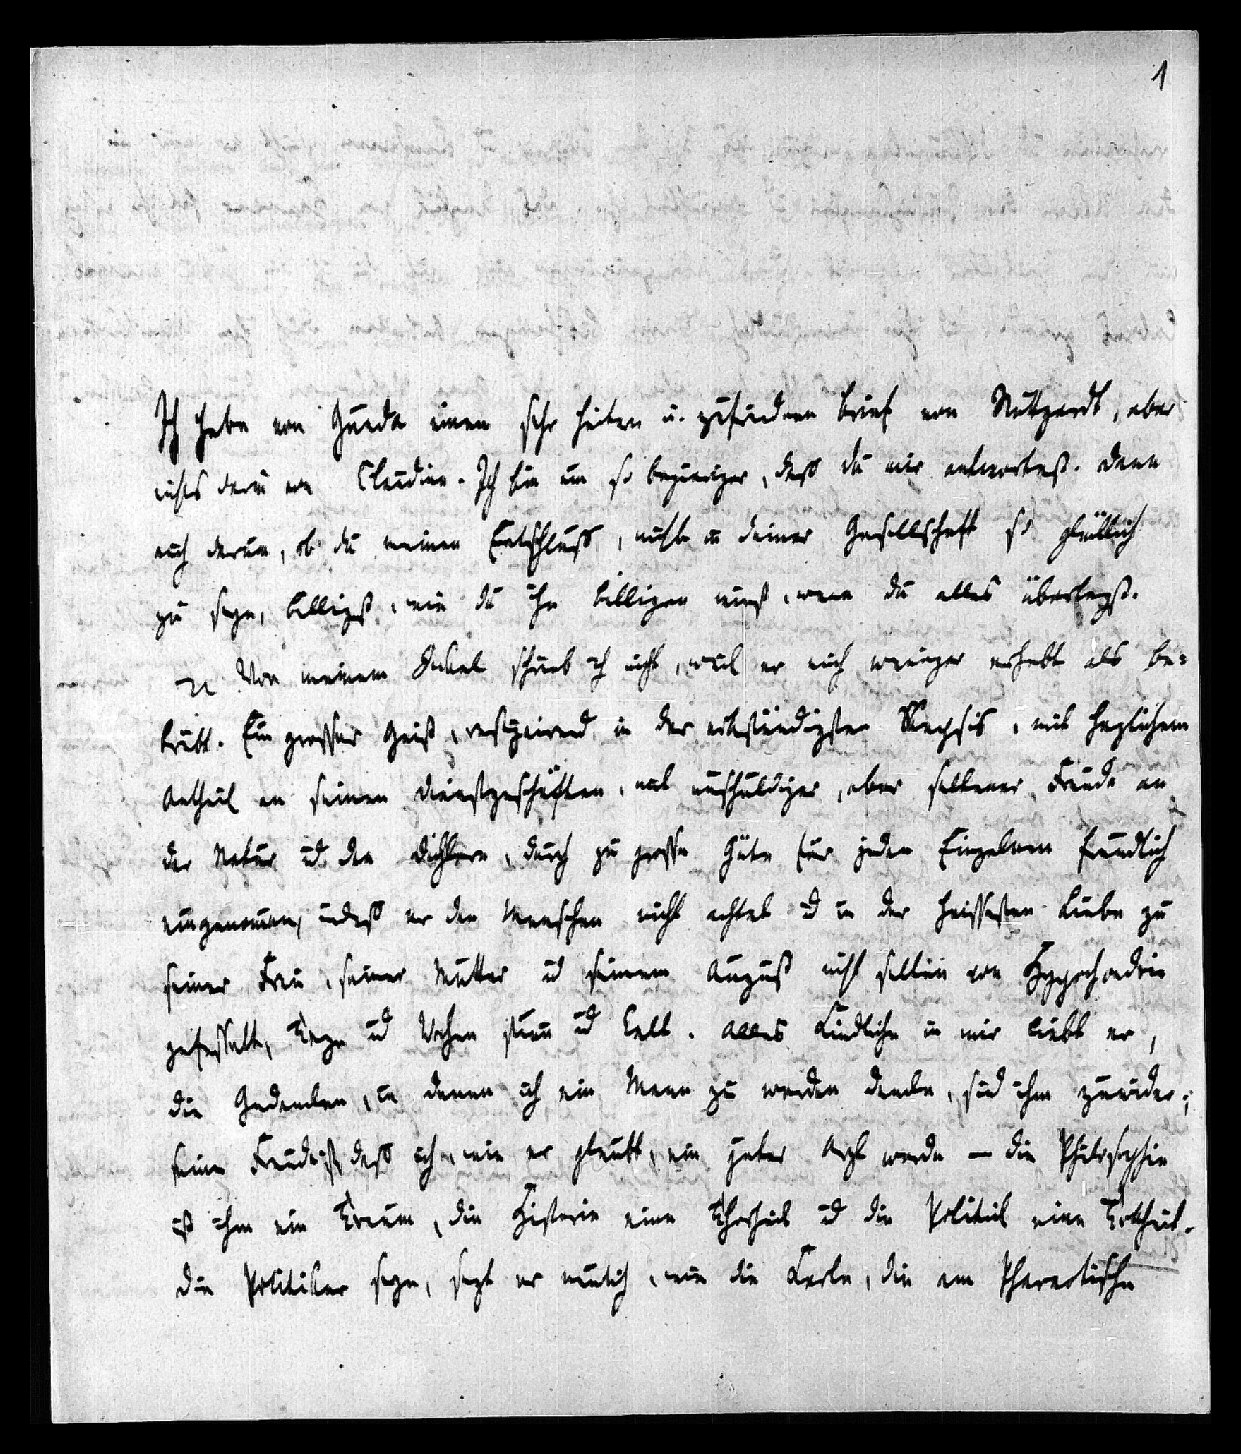 1
Ich habe von Gunda einen sehr heitern u. zufriednen Brief von Stuttgardt, aber
nichts darin von Claudine. Ich bin um so begieriger, daß du mir antwortest. Denn
auch darum, ob du meinen Entschluß, nicht in deiner Gesellschaft so glücklich
zu seyn, billigst, wie du ihn billigen mußt, wenn du alles überlegst.
Von meinem Onkel schrieb ich nicht, weil er mich weniger erhebt als be=
trübt. Ein großer Geist, resignirend in der vollständigsten, mit herzlichem
Antheil an seinen Dienstgeschäften, mit unschuldiger, aber seltener Freude an
der Natur ud den Dichtern, durch zu große Güte für jeden Einzelnen freundlich
eingenommen, indeß er den Menschen nicht achtet ud in der heissesten Liebe zu
seiner Frau, seiner Mutter ud seinem August nicht selten von Hypochondrie
gefesselt, Tage ud Wochen stum ud kalt. Alles Kindliche in mir liebt er,
die Gedanken, in denen ich ein Mann zu werden denke, sind ihm zuwider;
seine Freude ist, daß ich, wie er glaubt, ein guter Arzt werde — die Philosophie
ist ihm ein Traum, die Historie eine Thorheit ud die Politik eine
Die Politiker seyn, sagt er neulich, wie die Kerle, die am Pharaotische